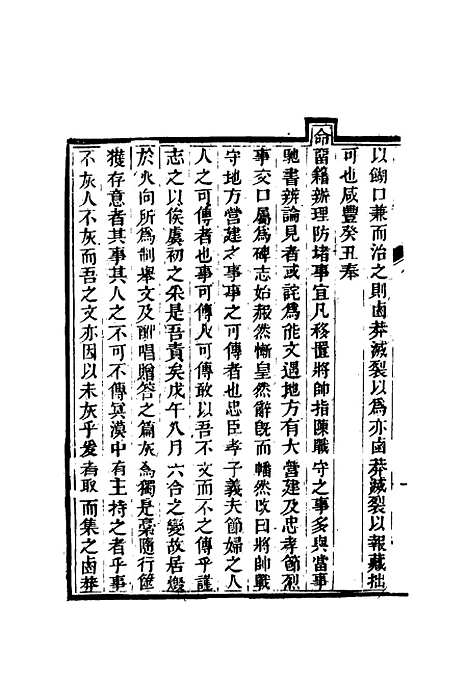 以餬口兼而治之則鹵莽滅裂以爲亦鹵莽滅裂以報藏拙
可也咸豐癸丑奉
命留籍辦理防堵事宜凡移置將帥指陳職守之事多與當事
馳書辨論見者或詫爲能文遇地方有大營建及忠孝節烈
事交口屬爲碑志始赧然慚皇然辭旣而幡然改曰將帥職
守地方營建之事事之可傳者也忠臣孝子義夫節婦之人
人之可傳者也事可傳人可傳敢以吾不文而不之傳乎謹
志之以俟虞初之采是吾責矣戊午八月六合之變故居燬
於火向所爲制舉文及酬唱贈答之篇灰焉獨是稾隨行篋
獲存意者其事其人之不可不傳冥漠中有主持之者乎事
不灰人不灰而吾之文亦因以未灰乎爰取而集之鹵莽